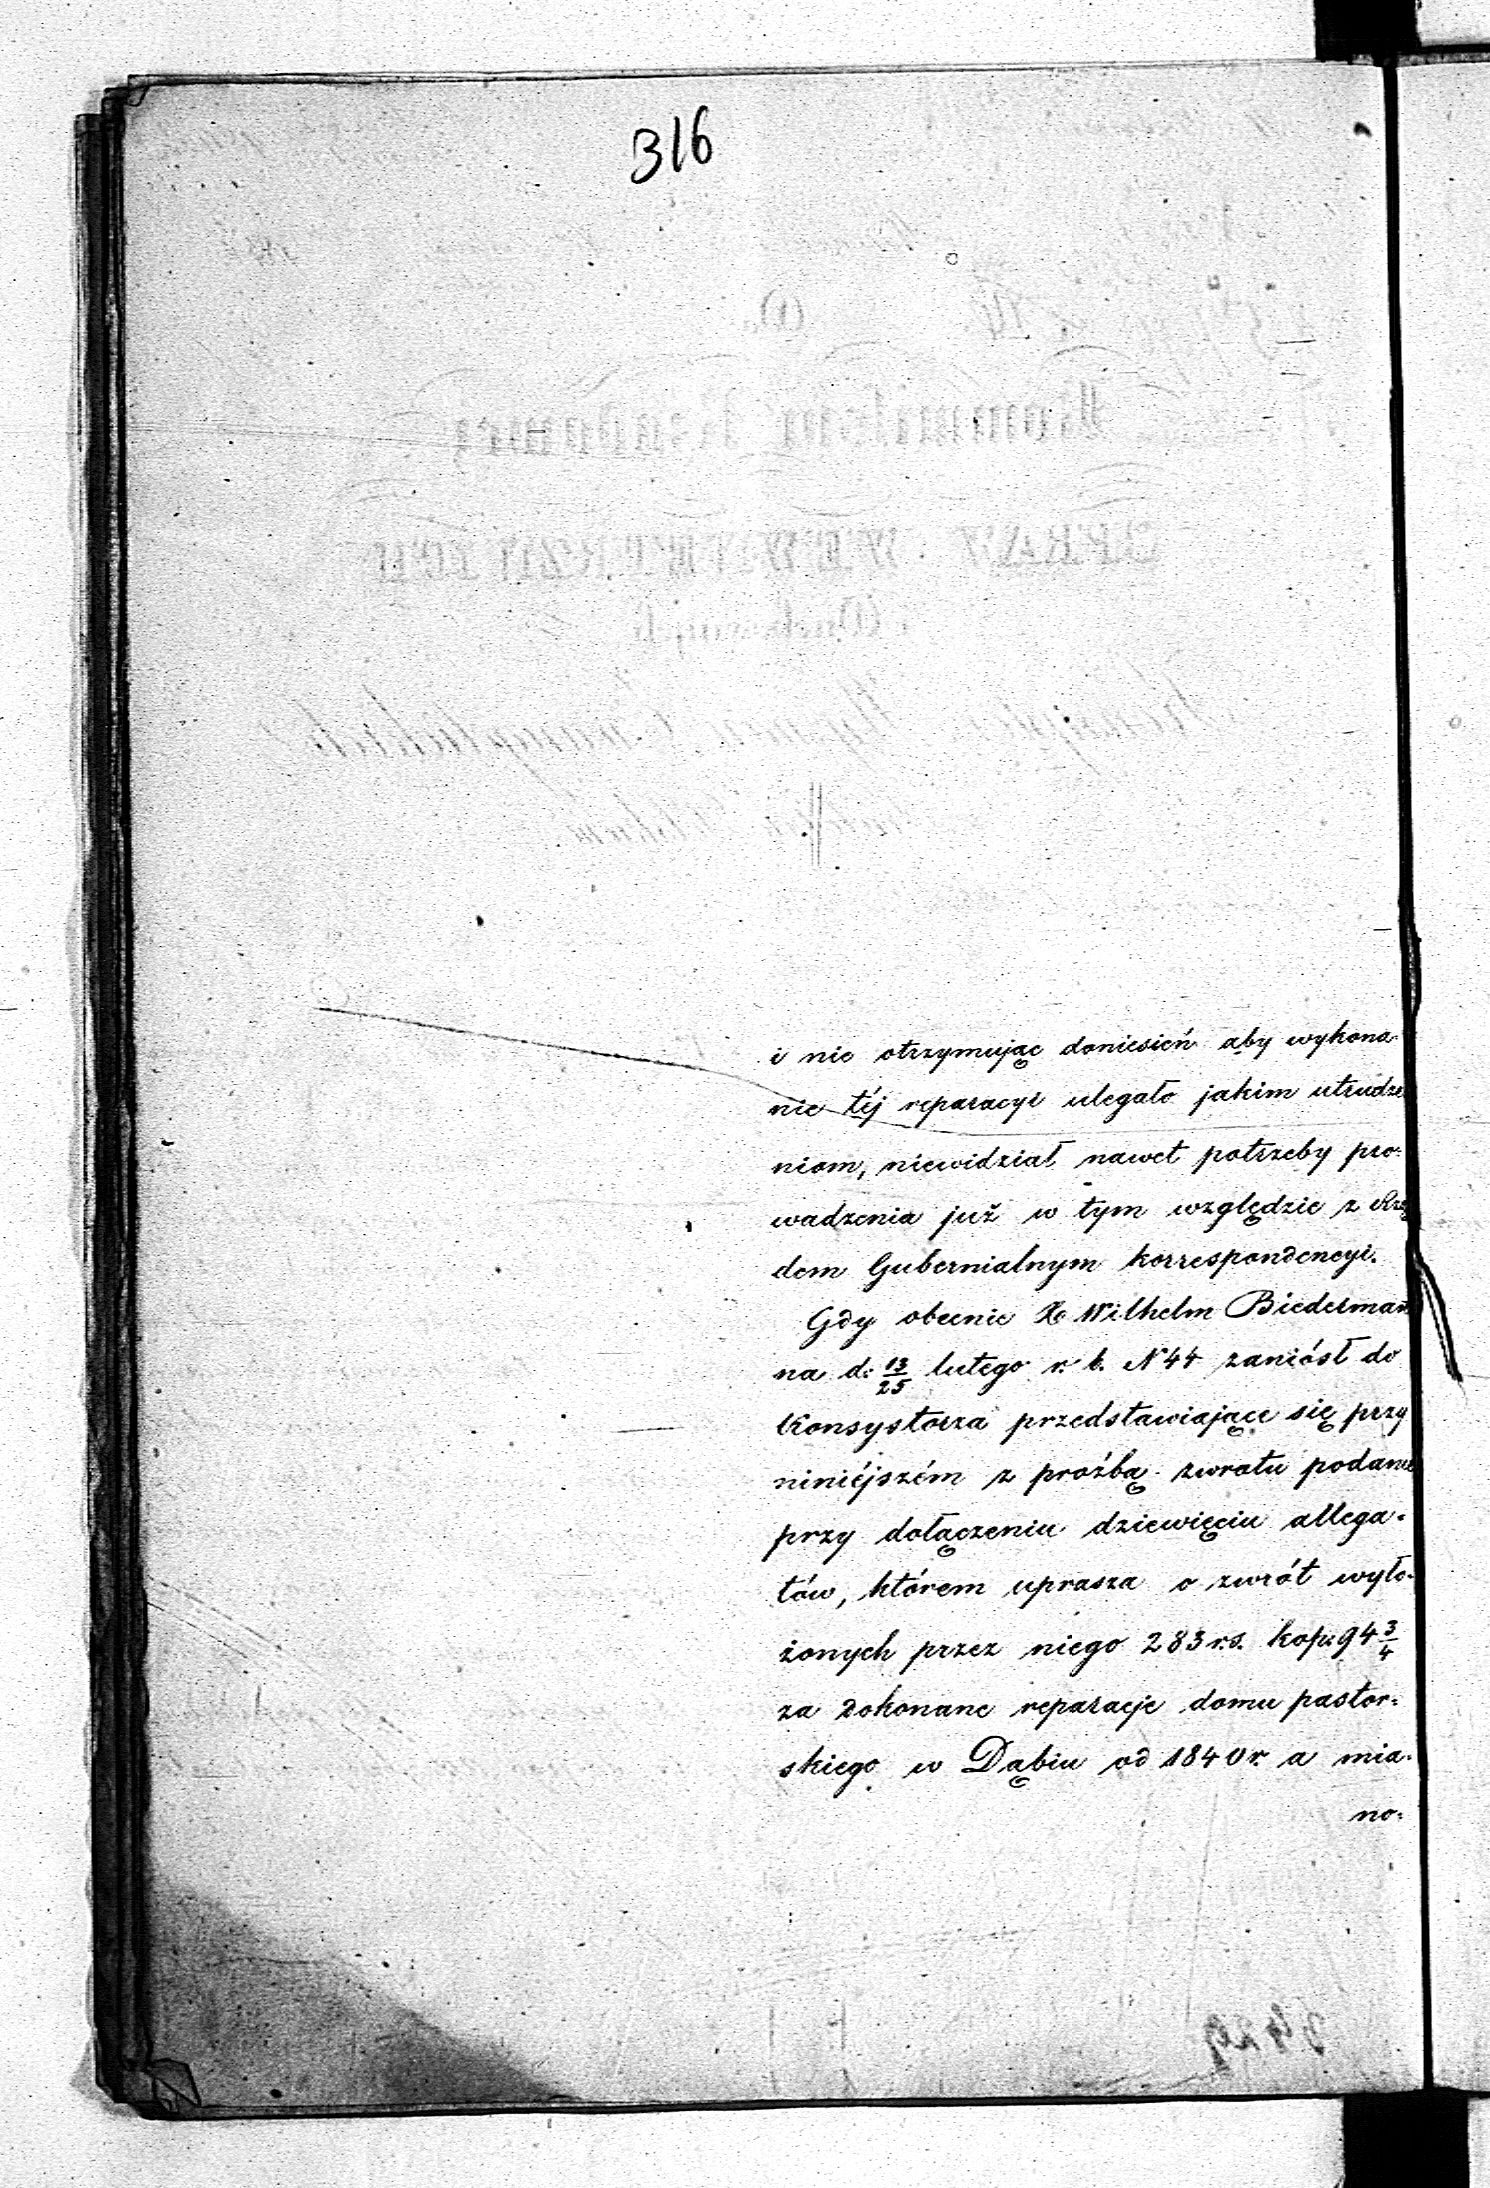 316
i nie otrzymując doniesień aby wykona-
nie téj reparacyi ulegało jakim utrudze
niom, niewidział nawet potrzeby pro-
wadzenia już w tym względzie z Rzą
dem Gubernialnym korrespondencyi.
Gdy obecnie X Wilhelm Biederman
na d: 13/25 lutego r. b. N 44 zaniósł do
Konsystorza przedstawiające się przy
niniéjszém z proźbą zwrotu podanie
przy dołączeniu dziewięciu allega-
tów, którem uprasza o zwrót wyło-
żonych przez niego 283 r.s. kop: 94 3/4
za dokonane reparacje domu pastor-
skiego w Dąbiu od 1840 r. a mia-
no-